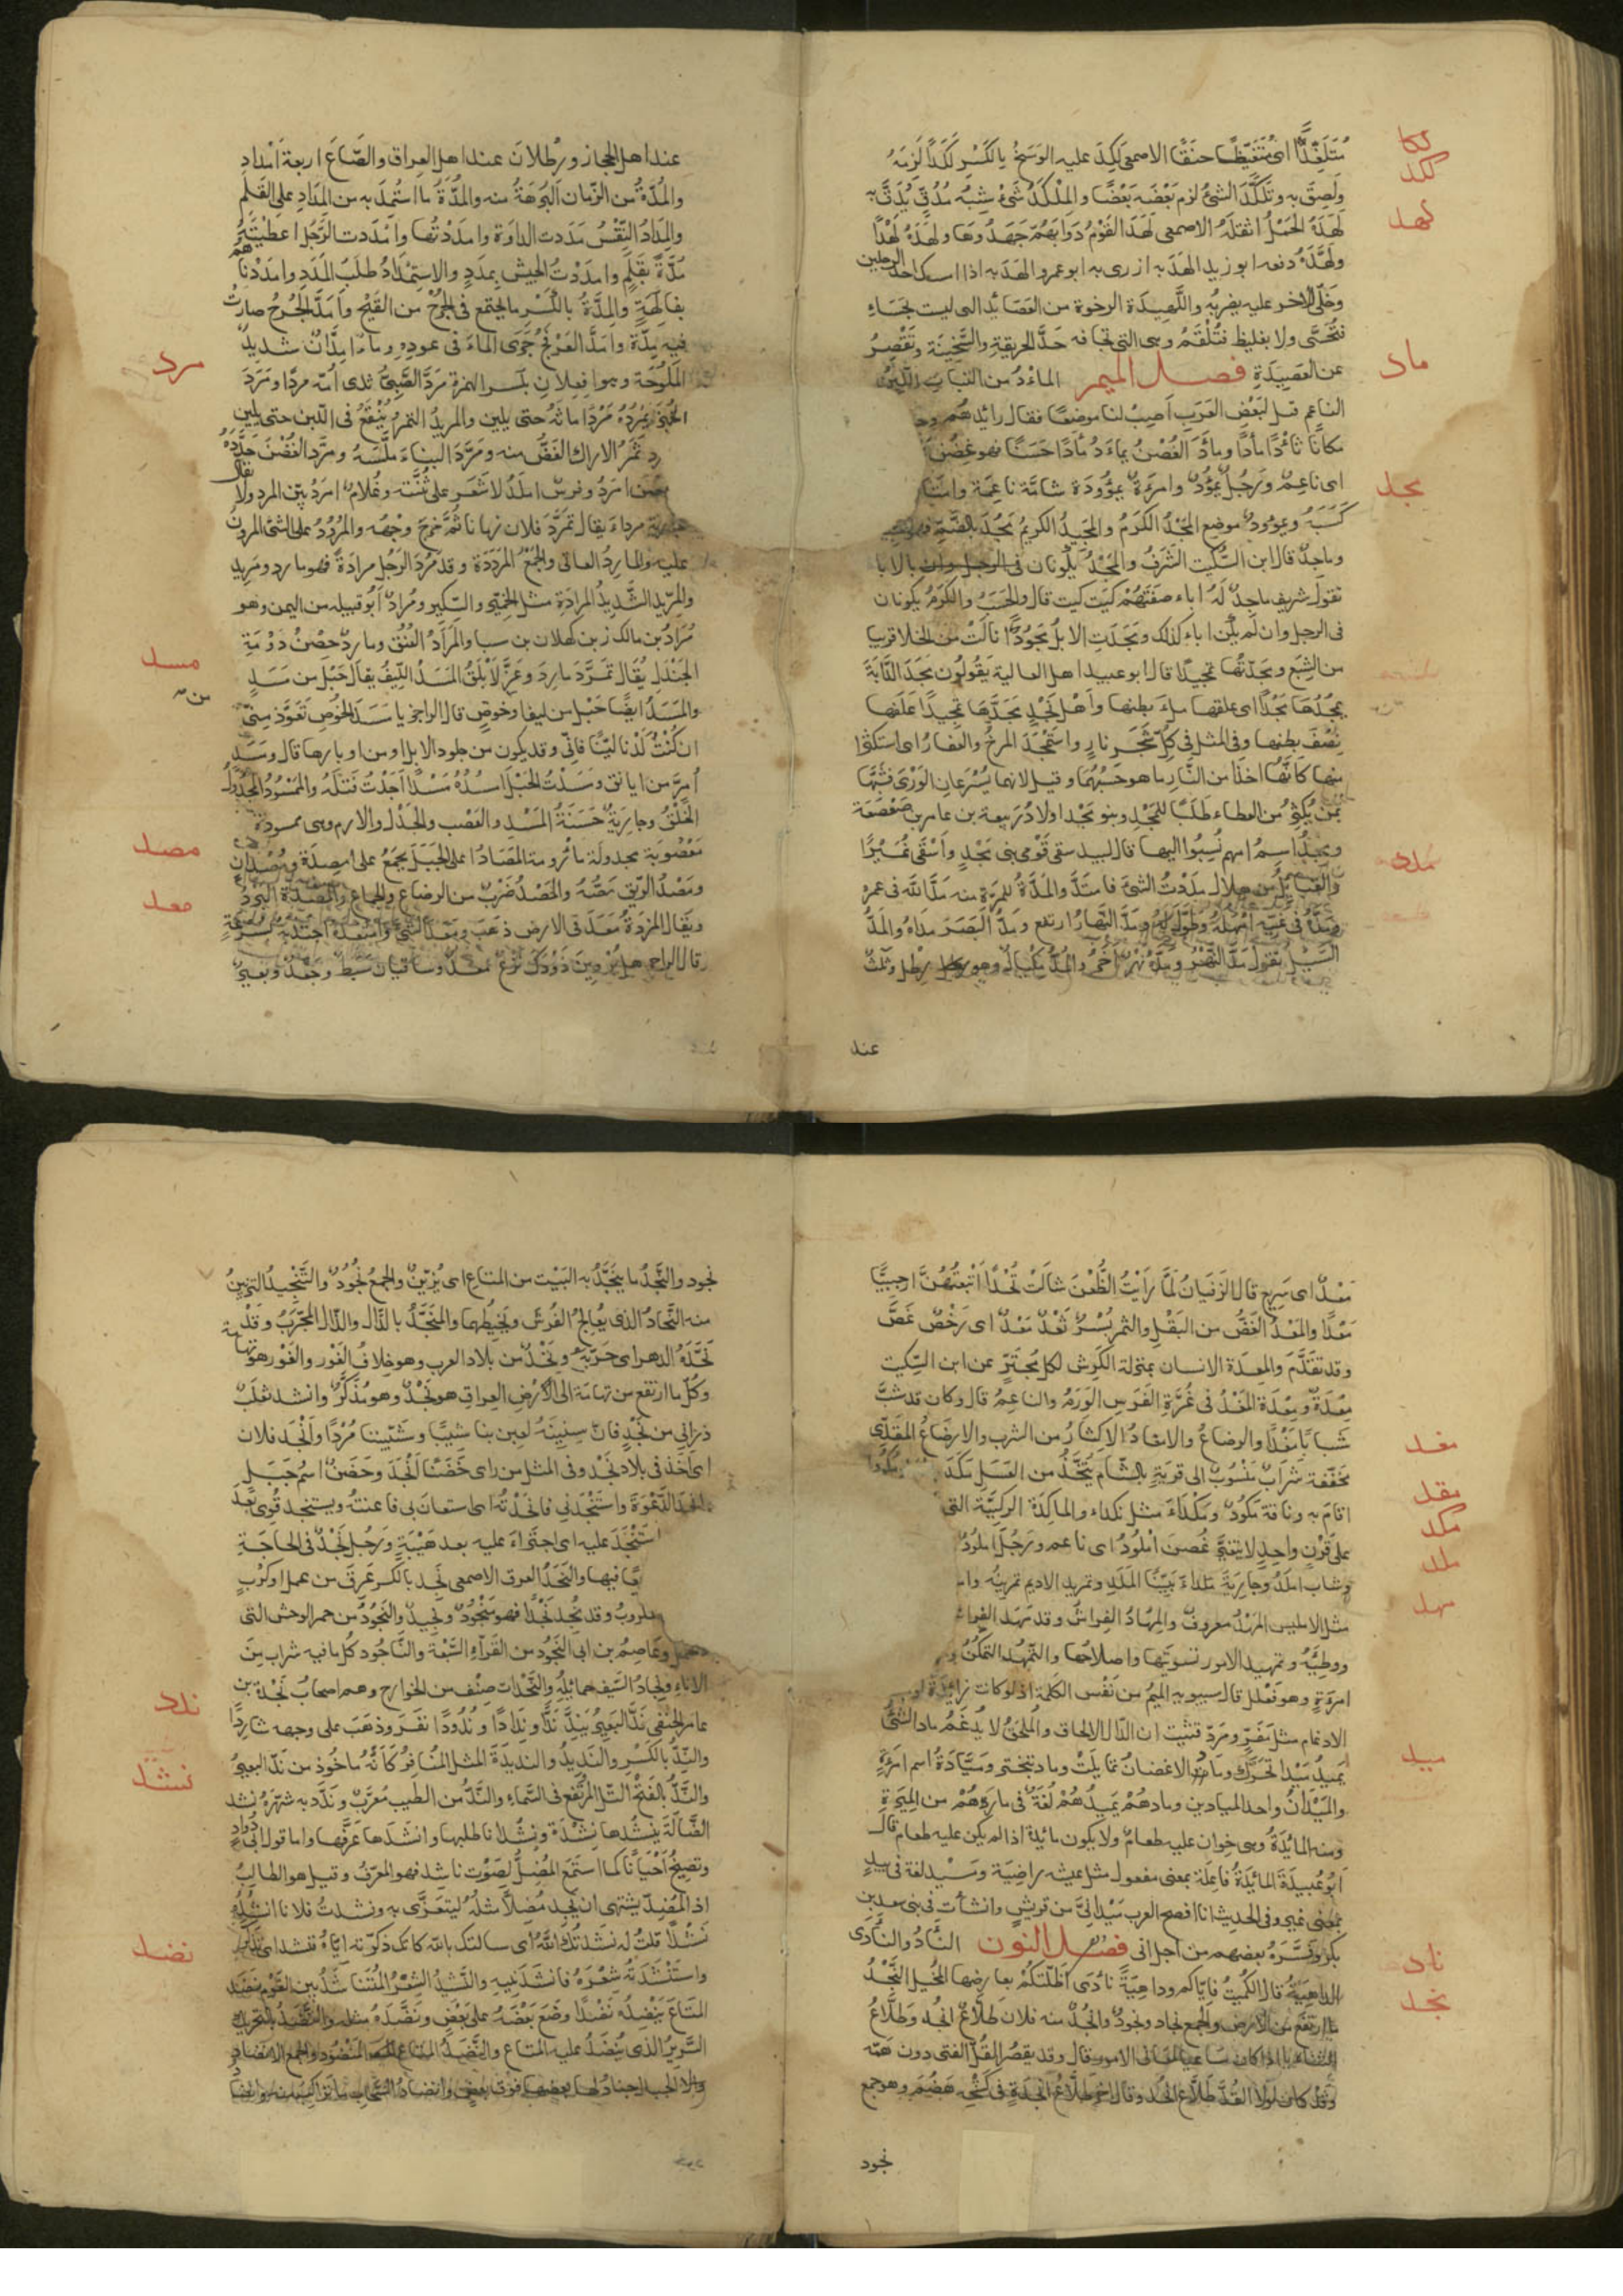 مُتَلَغِّدًا اى مُتَغَيِّظًا حنَقًا الاصمعى لَكِدَ عليه الوَسَخُ بالكَسْرِ لَكَدًا لَزِمَهُ
لكد
وَلَصِقَ به وتَلَكَّدَ الشئُ لزم بَعْضُه بَعْضًا والمِلْكَدُ شَىْءٌ شِبْهُ مُدُقٍّ يُدَقُّ به
لهد
لَهَدَهُ الحِمْلُ اثقلَهُ الاصمعى لَهَدَ القَوْمُ دَوَابَّهُمْ جَهَدُوهَا ولهَدَهُ لَهْدًا
ولَهَّدَهُ دفعه ابو زيد الهَدَ به ازرى به ابو عمرو الهَدَ به اذا امسك احد الرجلين
وخَلَّى الاخر عليه يضربه واللَّهِيدَة الرخوة من العَصَائِد التى ليست بحَسَاءٍ
فَتُحَسَّى ولا بغليظ فتُلْقَمُ وهى التى تجاوز حَدَّ الحريقةِ والسَّخِينَة وتَقْصِرُ
ماد
عن العَصِيدَةِ فصل الميم المأدُ من النبات اللَّيِّنُ
الناعِم قيل لبَعْضِ العَرَبِ أَصِبْ لنا موضعًا فقال رائدهم وجد
مكانًا ثأدًا مأدًا ومأَدَ الغُصْنُ يمأَدُ مأدًا حَسَنًا فهو غُصْن
مجد
اى ناعِمٌ ورَجُلٌ يمؤُدٌ وامرءةٌ يمؤُودَة شابَّة ناعِمَة وامتأد
كَسَبَهُ ويمؤودٌ موضع المجْدُ الكَرَمُ والمجِيدُ الكريمُ مَجُدَ بالضَّمِّ فهو مجيد
وماجِدٌ قال ابن السِّكِّيت الشَرَفُ والمجْدُ يكونان فى الرجل وان بالابا
تقول شريف ماجدٌ لَهُ اباء صفَتُهُمْ كيَت كيت قال والحَسَبُ والكَرَمُ يكونان
فى الرجل وان لَم يكن اباء كذلك ومَجَدَتِ الابلُ مُجُودًا نالَتْ من الخلا قريبا
من الشِبَع ومَجَّدْتُها تمجيدًا قال ابو عبيد اهل العالية يَقُولُون مجَدَ الدَّابَّةَ
يمجُدُها مَجْدًا اى علفها مِلءَ بطنها وأهْل نجْدٍ مجَّدَها تمجيدًا عَلَفها
نِصْفَ بطنها وفى المثل فى كلّ شجَرٍ نار واستَمْجَدَ المرخُ والعفار اى استكثرا
منها كَانَّهُما اخذا من النَّارِ ما هو حَسْبُهُمَا وقيل لانهما يُسْرِعانِ الوَرْىَ فشُبِّهَا
بمَنْ يُكْثِرُ من العطاء طَلَبًا للمَجْدِ وبنو مجْد اولادُ ربيعة بن عامر بن صَعْصَعَة
ومجْدُ اسمُ امهم نُسِبُوا اليها قال لبيد سقى قَوْمى بنى مَجْدٍ وأسْقَى نُمَيْرًا
مدد
والقبائلَ من هلال مدَدْتُ الشئَ فامتَدَّ والمَدَّةُ للمرَّة منه مَدَّ اللّه فى عمره
ومَدَّهُ فى غَيِّه أمْهَلَهُ وطَوَّلَ لَهُ ومَدَّ النَّهارُ ارتفع ومَدُّ البَصَرَ مداهُ والمَدُّ
السَيْلُ تقول مَدَّ النَّهْرُ ومَدَّهُ نهرٌ آخَرُ والمُدُّ مكيالٌ وهو رطل وثلث
عند
عند اهل الحجاز ورِطْلان عند اهل العراق والصَّاعَ اربعة أمْداد
والمُدَّةُ من الزَّمان البُرهَةُ منه والمُدَّةُ ما استُمِدَ به من المِدَادِ على القَلَم
والمِدَادُ النِّقْسُ مددت الدَّوَاة وامدَدْتُها وامددت الرَّجُلَ اعطَيْتُهُ
مُدَّةً بقَلَمٍ وامدَدْتُ الجيش بمدَدٍ والاستِمْدَادُ طلَبُ المدَدِ وامدَدْنَاهم
بفاكِهَةٍ والمِدَّةُ بالكَسْر ما يجتمع فى الجُرْحِ من القَيْحِ وأمدَّ الجُرْحُ صارتْ
فيه مِدَّة وامدَّ العَرْفَجُ جَرَى الماءُ فى عودِهِ وماءٌ اِمِدَّانٌ شديدُ
مرد
المُلُوحَة وهو افعِلان بكسر الهمزة مَرَدَ الصَّبِىُّ ثدى أمّه مردًا ومَرَدَ
الخبزَ يَمْرُدُهُ مَرْدًا ماثَهُ حتى يلين والمريدُ التمرُ يُنْقَعُ فى اللّبن حتى يلين
رد ثمرُ الاراك الغَضُّ منه ومَرَّدَ البناءَ مَلَّسَهُ ومرَّد الغُصْنَ جَرَّدَهُ
غصن امرَدُ وفرسٌ امردُ لا شَعَر على ثُنَّته وغُلامٌ امرَدُ بيّن المرد ولا يقال
جارية مرداءَ يقال تمرَّدَ فلان زمانا ثُمَّ خرجَ وجْهُه والمُرُودُ على الشئ المرونُ
عليه والمارِدُ العاتى والجَمْعُ المَرَدَة وقد مَرُدَ الرَجُل مرادةً فهو مارد ومَرِيد
والمِرِّيد الشَّدِيدُ المرادَةِ مثل الخِمِّيرِ والسِّكِّير ومُرادٌ أبُو قبيله من اليمن وهو
مُرَادُ بن مالك بن كهلان بن سبا والمَرَادُ العُنُق وماردٌ حِصْنُ دُوْمَةِ
مسد
الجَنْدَل يُقال تمَرَّدَ مارِدٌ وعَزَّ الأبْلَقُ المَسَدُ اللِّيفُ يقال حَبْل من مَسَدٍ
والمَسَدُ ايضًا حَبْل من ليف او خوصٍ قال الراجز يا مَسَدَ الخُوصِ تَعَوَّذْ مِنّى
ان كُنْتَ لَدْنا ليِّنًا فانّى وقد يكون من جلود الابل او من اوبارها قال ومَسَدٍ
أُمِرَّ من ايانق ومَسَدْتُ الحَبْلَ امسُدُهُ مَسْدًا أجَدْتُ فَتْلَهُ والمَمْسُودُ المجْدُولُ
الخَلْقُ وجارِيَةٌ حَسَنَةُ المَسْدِ والعَصْب والجَدْل والارم وهى ممسودة
مصد
مَعْصُوبَة مجدولَة مأرومة المَصَادُ اعلى الجَبَل يجمَعُ على امصِدَة ومُصْدان
ومَصْدُ الرِّيق مَصُّهُ والمَصْدُ ضَرْبٌ من الرضاع والجماع والمَصْدَة البَردُ
معد
ويقال المزدَةُ معَدَ فى الارض ذهَبَ ومَعَدَ الشئَ وامتعَدَهُ اجتذبه بسُرعَةٍ
وقال الراجز هل يُرْوِيَنْ ذَوْدَكَ نَزْعٌ مَعْدٌ وساقيان سَبِطٌ وجَعْدٌ وبعيرٌ
مَعْدٌ اى سَرِيع قال الزفَيَان لَمَّا رَأيْتُ الظُّعْنَ شالَتْ تُحْدَا أتْبَعْتُهُنَّ ارحبيًّا
مَعْدًا والمَعْدُ الغَضُّ من البَقْلِ والثمر بُسْرٌ ثَعْدٌ مَعْدٌ اى رَخْصٌ غَضٌّ
وقد تقَدَّمَ والمعِدَة الانسان بمنزلة الكَرِش لكل مُجتَرٍّ عن ابن السِّكِّيت
مِعْدَةٌ ومَعِدَة المَغْدُ فى غُرَّةِ الفَرَسِ الوَرَمُ والناعِمُ قال وكان قد شبَّ
مغد
شبابًا مَغْدًا والرضاعُ والامغادُ الاكثارُ من الشرب والارضاعُ المَقَدِّى
مقد
مخفّفة شَرَابٌ مَنْسُوبٌ الى قريَةٍ بالشَّام يُتَّخَذُ من العَسَلِ مَكَدَ
مكد
اقامَ به وناقة مَكُودٌ ومَكْداءُ مثل نكداء والماكِدَة الركيَّة التى
ملد
على قَرْنٍ واحدٍ لا يتغيَّر غُصنٌ امْلُودٌ اى ناعم ورَجُلٌ املودٌ
وشاب املَدُ وجارِيَةٌ مَلْداءُ بيِّنَا المَلَدِ وتمليد الاديم تمرينُه
مهد
مثل الامليس المَهْدُ معروفٌ والمِهادُ الفِراشُ وقد مَهَد الفراش
ووطِيَّهُ وتمهيد الامور تسويتها واصلاحُها والتَّمهُّد التمكُّنُ
امرءةٍ وهو فَعْلَل قال سيبويه الميمُ من نَفْس الكَلمة اذ لو كانت زائدَة
الادغام مثل مَفَرٍّ ومَرَدٍّ فثبت ان الدَّال للالحاق والمُلحَقُ لا يُدغَمُ ماد الشئُ
ميد
يَمِيدُ مَيْدًا تحَرَّكَ ومادتِ الاغصانُ تمايَلَتْ وماد تبختر ومَيَّادَةُ اسم امرءةٍ
والمَيْدَانُ واحد الميادين ومادهُمْ يَمِيدُهُمْ لُغَةٌ فى مارَهُمْ من المِيَرَةِ
ومنه المائِدَةُ وهى خِوان عليه طعامٌ ولا يكون مائدة اذا لم يكن عليه طعام قال
أبو عُبيدَةَ المائِدَةُ فاعِلَة بمعنى مفعول مثل عيشه راضِيَة ومَيْد لغة فى بيد
بمعنى غير وفى الحديث انا افصح العرب مَيْدَ انِّى من قريشٍ وانشأت فى بنى سعد بن
ناد
بكر وفَسَّرَهُ بعضهم من اجل انى فصل النون النَّادُ والنَّأدَى
نجد
الداهِيَةُ قال الكُمَيتُ فاِيّاكم وداهيَةً نآدَى أظَلَّتْكُمْ بعارِضها المُخِيل النَّجْدُ
ما ارتفع من الارض والجمع نجاد ونجودٌ وانجُدٌ منه فلان طلَّاعُ انجُد وطَلَّاعُ
الثنايا اذا كان ساميا لمعالى الامور قال وقد يقصُر القُلُّ الفتى دون همّه
وقد كان لولا القُلُّ طَلَّاعَ انجُد وقال آخر طلَّاعُ انجِدَةٍ فى كَشْحِه هَضَمُ وهو جمع
نجود
نجود والنَّجْدُ ما يُنَجَّدُ به البَيْت من المتاع اى يُزَيَّنُ والجمعُ نُجُودٌ والتَّنْجِيدُ التزيينُ
منه النَّجّادُ الذى يُعالِجُ الفُرشَ ويَخِيطُها والمُنَجَّدُ بالدَّال والذال المجَرَّبُ وقَدْ
نَجَّدَهُ الدهر اى جَرَّبَهُ ونَجْدٌ من بلاد العرب وهو خِلافُ الغَوْر والغَوْر هو تهامة
وكلّ ما ارتفع من تهامَة الى ارض العراقِ هو نَجْدٌ وهو مُذكَّرٌ وانشد ثعلَبٌ
ذرانى من نَجْدٍ فانّ سِنِينَهُ لعِبن بنا شيبًا وشَيَّبْننا مُرْدًا وأنْجَدَ فلان
اى أخَذَ فى بلاد نَجْد وفى المثل من راى حَضَنًا انجَدَ وحَضَنٌ اسمُ جَبَلٍ
انجَدَ الدَّعْوَةَ واستَنْجَدَنِى فانجَدْتُهُ اى استعانَ بى فاعنتُهُ واستنجد قَوِىَ بعد
استَنْجَدَ عليه اى اجتَرَاءَ عليه بعد هَيْبَةٍ ورَجُل نَجْدٌ فى الحاجَةِ
فيها والنَجَدُ العرق الاصمعى نَجِد بالكسر عَرِقَ من عمل او كَرْبٍ
مكروبٌ وقد نُجِد نَجْدًا فهو مَنْجُودٌ ونجِيدٌ والنَجُودُ من حمر الوحش التى
تحمل وعاصِمُ بن ابى النَجُود من القُرَّاءِ السَّبْعَة والنَّاجُود كلّ ما فيه شراب مِنَ
الاناءِ ونِجادُ السَّيف حمائلُهُ والنَّجَدَات صِنْف من الخوارج وهم اصحابُ نَجْدة بن
ندد
عامر الحنَفِى نَدَّ البَعِيرُ يَنِدُّ نَدًّا ونِدَادًا ونُدُودًا نفَرَ وذهَبَ على وجهه شارِدًا
والنِدُّ بالكَسْرِ والنَدِيدُ والنديدَة المثل المُنَافِرُ كَأنَّهُ ماخُوذ من نَدَّ البعيرُ
نشد
والنَدُّ بالفَتْحِ التلّ المرتَفع فى السَّماءِ والنَدُّ من الطيب مُعَرَّبٌ ونَدَّد به شهَرَهُ نشد
الضَّالَّةَ ينشُدُها نِشْدَةً ونِشْدانا طلبها وانشَدَها عَرَّفها واما قول ابى دُوادٍ
ويُصِيخُ أحيانًا كما استَمَعَ المُضِلُّ لصَوْت ناشِد فهو المعرّفُ وقيل هو الطالِبُ
اذ المُضِلّ يشتهى ان يجد مُضِلًّا مثلَهُ ليتعَزَّى به ونشدتُ فلانا انشُدُهُ
نضد
نَشْدًا قلتُ له نشَدتُكَ اللّهَ اى سالتك باللّه كانّك ذكّرته ايّاهُ فنشد اى تذكر
واستَنْشَدتُه شِعْرَهُ فانشَدَنِيهِ والنَشِيدُ الشِعْرُ المُتَناشَدُ بين القَوْم نضَدَ
المتَاعَ يَنْضِدُه نَضْدًا وضَعَ بَعْضَهُ على بَعْضٍ ونَضَّدَهُ مثله والنضَدُ بالتحريك
السَرِيرُ الذى يُنْضَدُ عليه المتاع والنَّضَدُ المتاع المنضُود والجمع الانضاد
والانضاد الجبال جنادل بعضها فوق بعض وانضادُ السَّحاب ما تراكَبَ منه